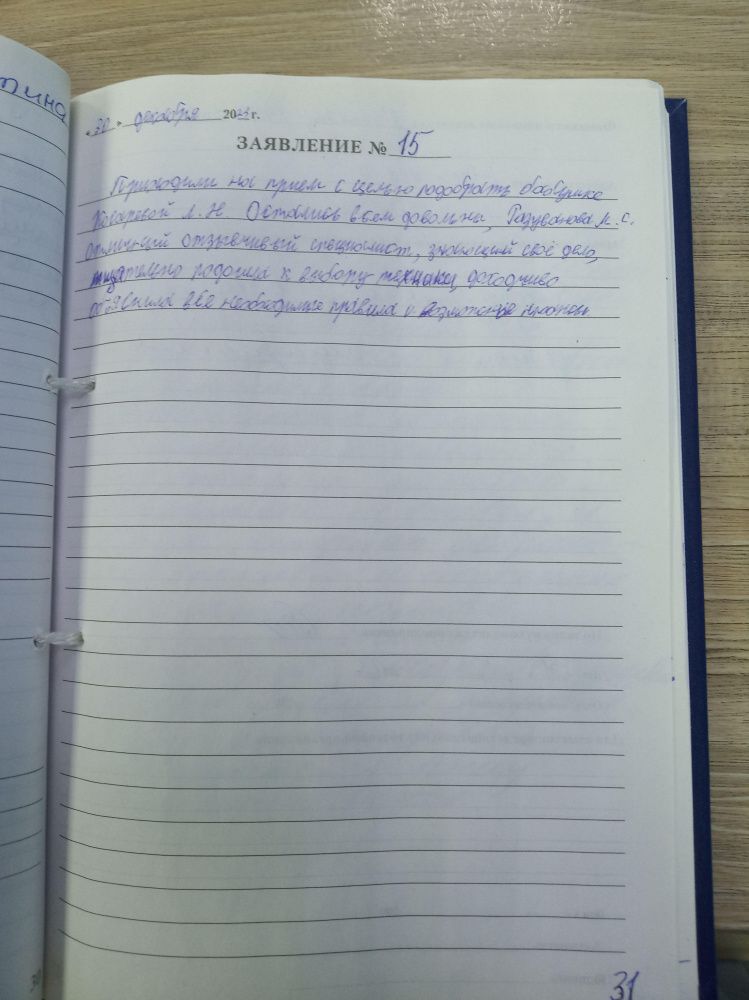 тина
«30» декабря 2023 г.
ЗАЯВЛЕНИЕ № 15
Приходили на прием с целью подобрать бабушке
Косаревой Л. Н. Остались всем довольны, Разуванова М. С.
отличный отзывчивый специалист, знающий своё дело,
тщательно подошла к выбору техники, доходчиво
объяснила все необходимые правила и возможные
31